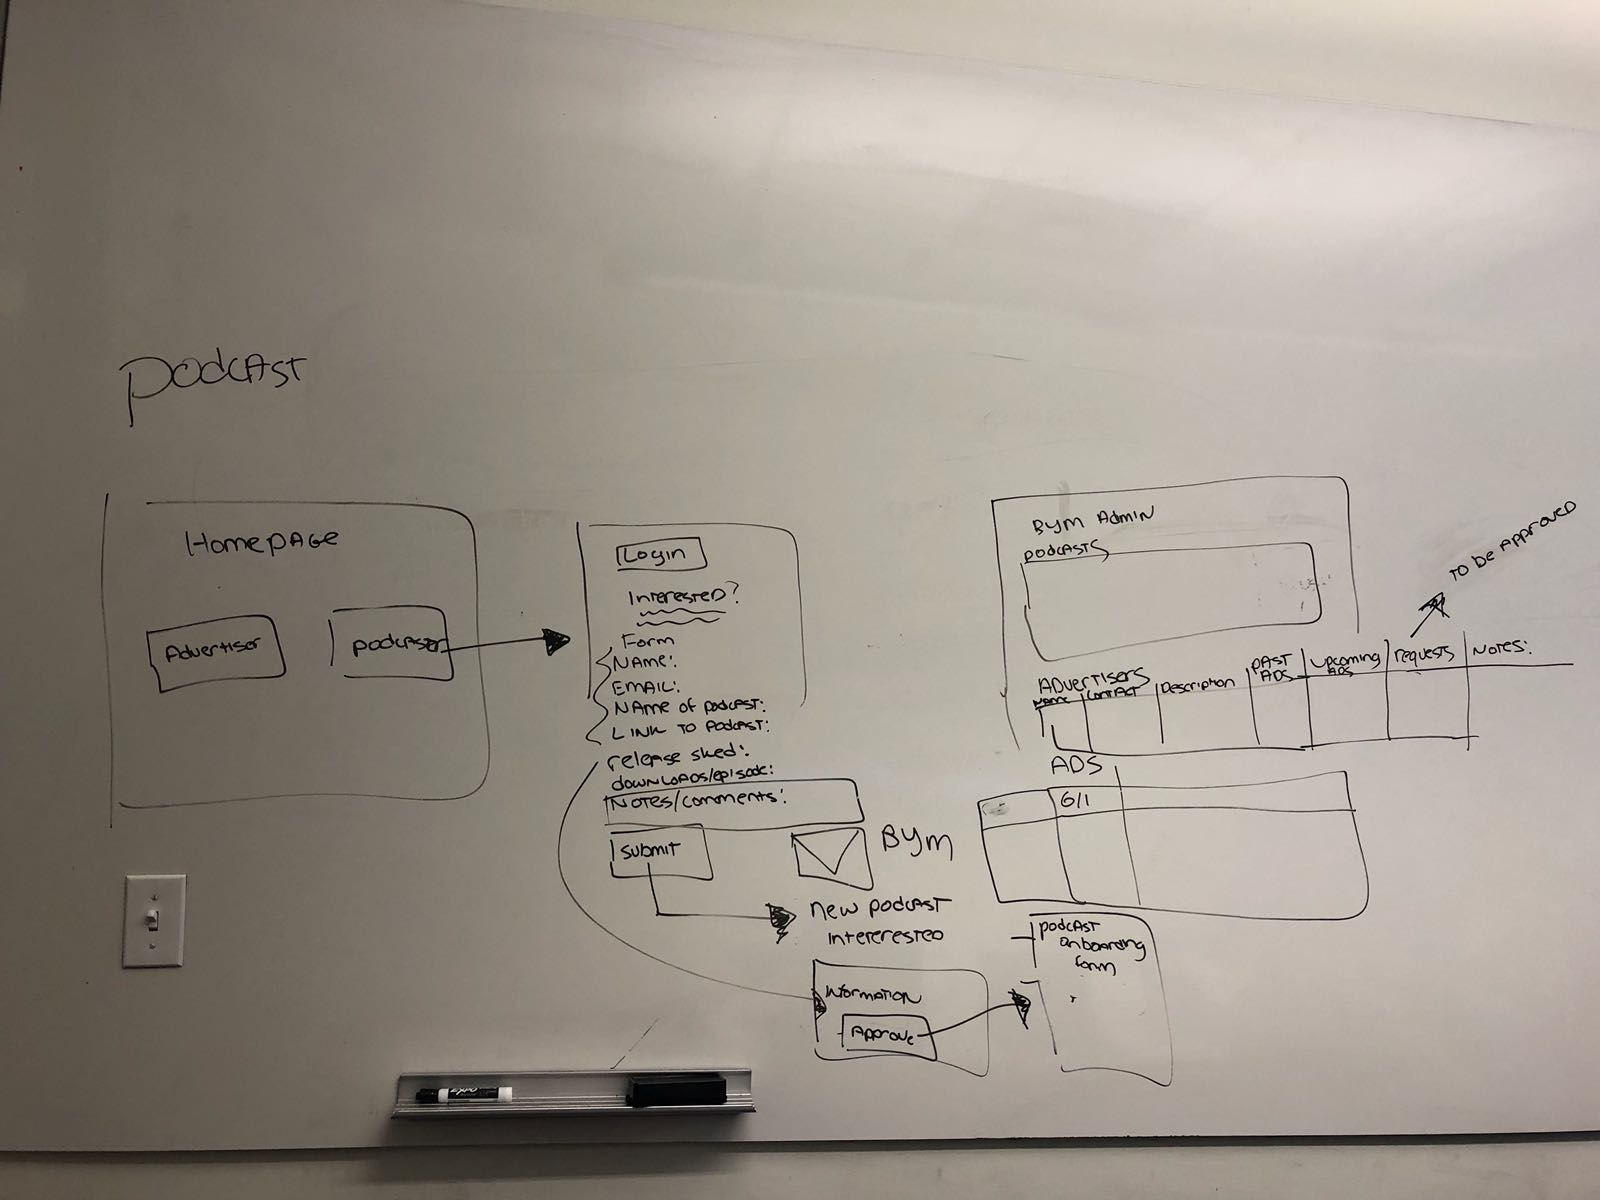 Podcast
Homepage
Advertiser
podcaster
Login
Interested?
Form
NAME:
EMAIL:
NAME of podcast:
LINK to podcast:
release sked:
downloads/episode:
Notes/comments:
submit
Bym
new podcast
intererested
Information
Approve
podcast
onboarding
form
Bym Admin
podcasts
To be Approved
Advertisers
NAME
contact
Description
past
ADS
upcoming
ADS
requests
NOTES:
ADS
6/1
EXPO